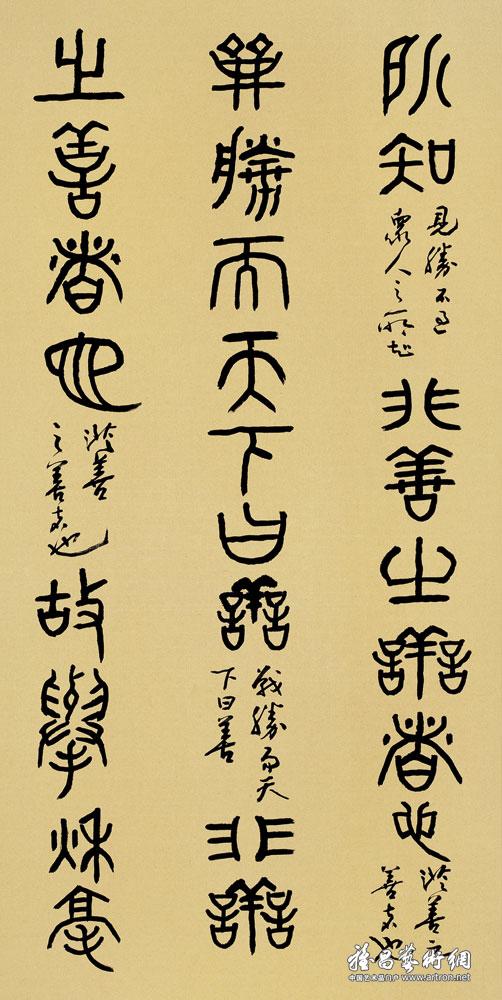 所知見勝不過衆人之所知非善之善者也非善之善者也
戰勝而天下曰善戰勝而天下曰善非善
之善者也非善之善者也故舉秋毫
雅昌藝術網
中国艺术品门户 www.artron.net